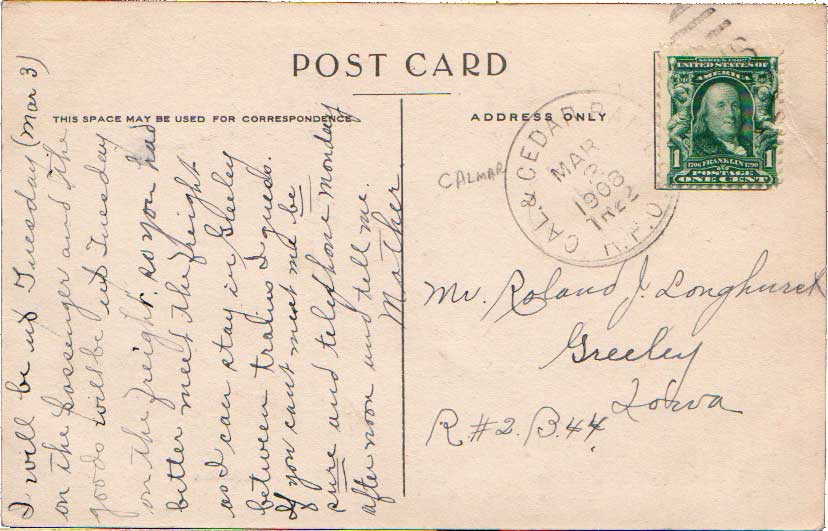 POST CARD
THIS SPACE MAY BE USED FOR CORRESPONDENCE
ADDRESS ONLY
I will be up Tuesday (Mar 3)
on the passenger and the
goods will be up Tuesday
on the freight. so you had
better meet the freight
as I can stay in Greeley
between trains I guess.
If you cant meet me be
sure and telephone Monday
after noon and tell me.
Mother
CALMAR
CAL. & CEDAR
MAR
1908
TR22
R.P.O.
SERIES 1902
UNITED STATES OF
AMERICA
1706 FRANKLIN 1790
1 1
POSTAGE
ONE CENT
Mr. Roland J. Longhurst
Greeley
Iowa
R #2. B. 44